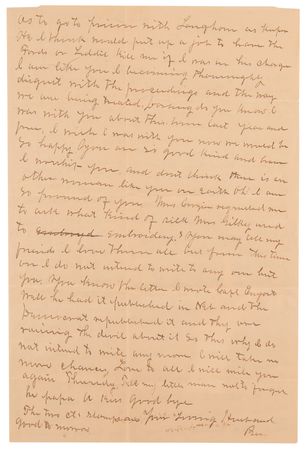 as to go to prison with Longhorn as keeper
He I think would put up a job to have the
Lords or Liddie kill me if I was in his charge
I am like you I becoming thoroughly
disgust with the proceedings and the way
we are being treated, Darling do you know I
was with you about this time last year and
you, I wish I was with you now we would be
so happy you are so good kind and
I worship you and dont think there is an
other woman like you on Earth Oh I am
so proud of you Mrs requested me
to ask what kind of silk Mrs used
to Embroidery, you may tell my
friends I love them all but from this time
on I do not intend to write to any one but
you. You know the letter I wrote Capt
Well he had it published in and the
Democrat republished it and they are
raising the devil about it So this why I do
not intend to write any more I will take no
more chances, Love to all I will write you
again Thursday Tell my little man not to forget
he papa A Kiss Good bye
The two cts stamps are Your Loving Husband
good to